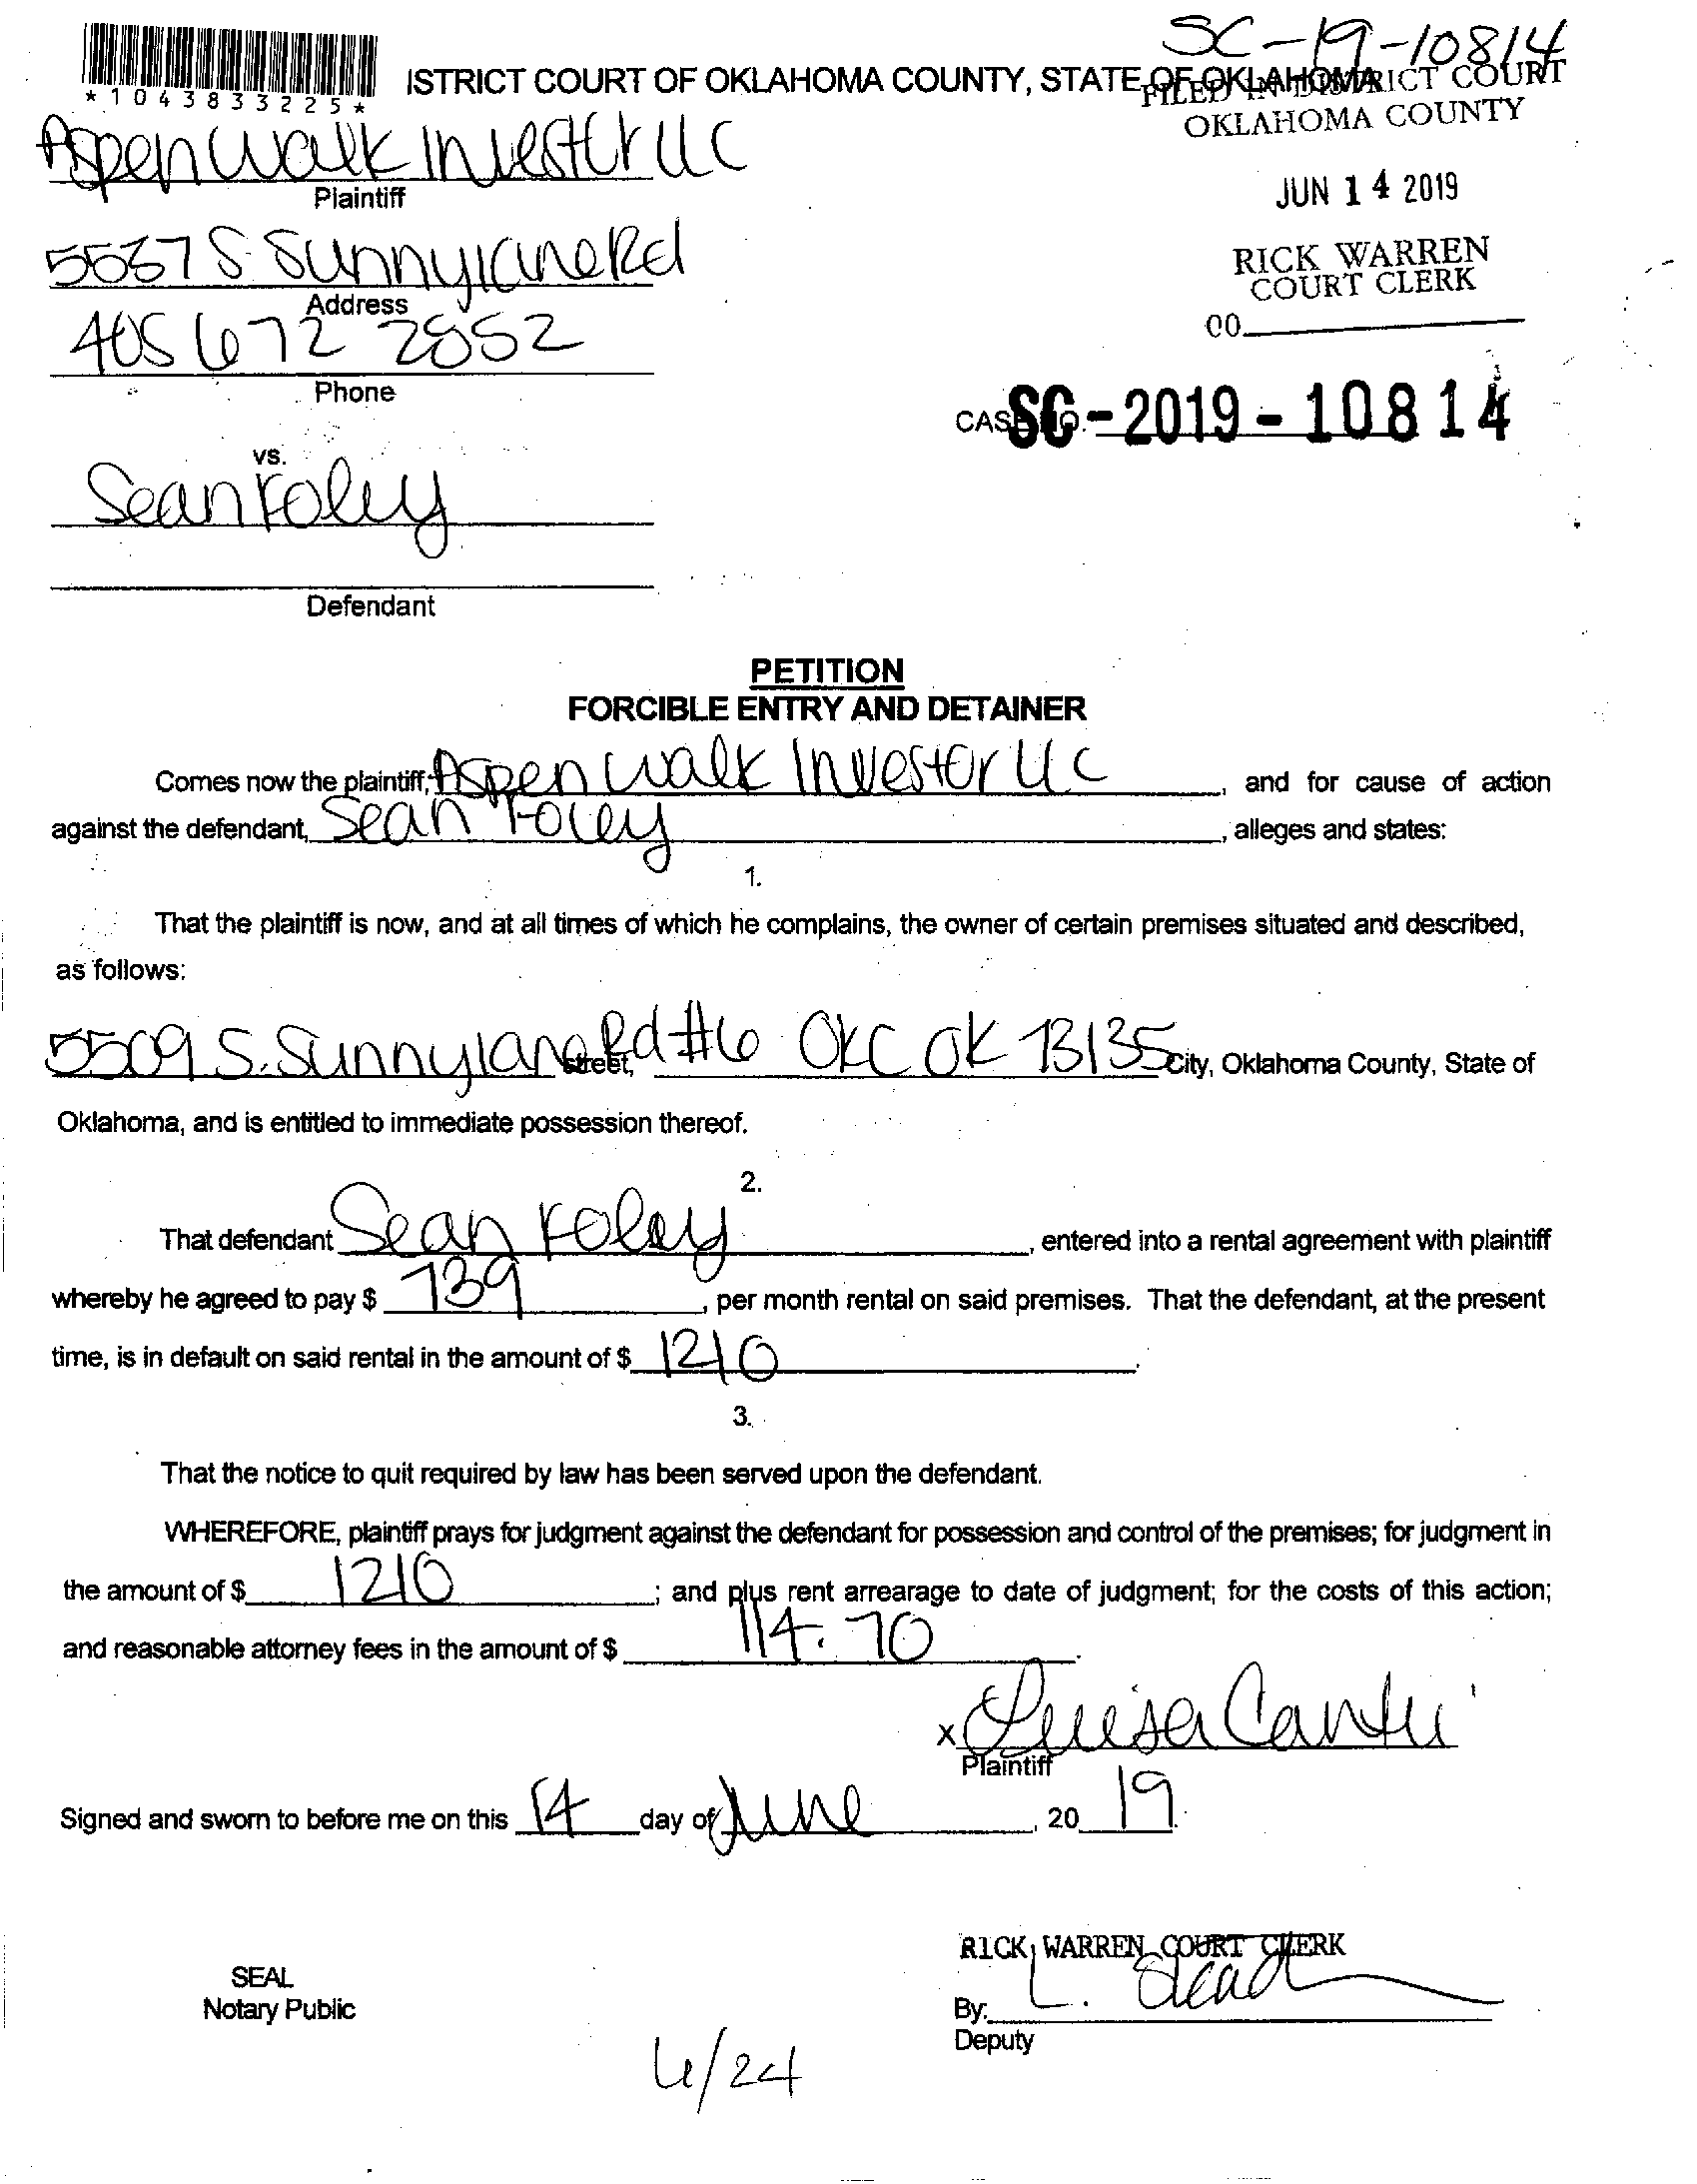 SC-19-10814
*1043833225*
ISTRICT COURT OF OKLAHOMA COUNTY, STATE OF OKLAHOMA
FILED IN DISTRICT COURT
OKLAHOMA COUNTY
Aspen Walk Investor LLC
Plaintiff
JUN 14 2019
5537 S. Sunnylane Rd
Address
RICK WARREN
COURT CLERK
405 672 2852
Phone
CASE NO. SC-2019-10814
vs.
Sean Foley
Defendant
PETITION
FORCIBLE ENTRY AND DETAINER
Comes now the plaintiff, Aspen Walk Investor LLC, and for cause of action
against the defendant, Sean Foley, alleges and states:
1.
That the plaintiff is now, and at all times of which he complains, the owner of certain premises situated and described,
as follows:
5509 S. Sunnylane Rd #6 OKC OK 73135 street, City, Oklahoma County, State of
Oklahoma, and is entitled to immediate possession thereof.
2.
That defendant Sean Foley, entered into a rental agreement with plaintiff
whereby he agreed to pay $ 739, per month rental on said premises. That the defendant, at the present
time, is in default on said rental in the amount of $ 1210.
3.
That the notice to quit required by law has been served upon the defendant.
WHEREFORE, plaintiff prays for judgment against the defendant for possession and control of the premises; for judgment in
the amount of $ 1210; and plus rent arrearage to date of judgment; for the costs of this action;
and reasonable attorney fees in the amount of $ 114.70.
x Luisa Cantu
Plaintiff
Signed and sworn to before me on this 14 day of June, 2019.
RICK WARREN COURT CLERK
SEAL
Notary Public
By: L.
Deputy
6/24